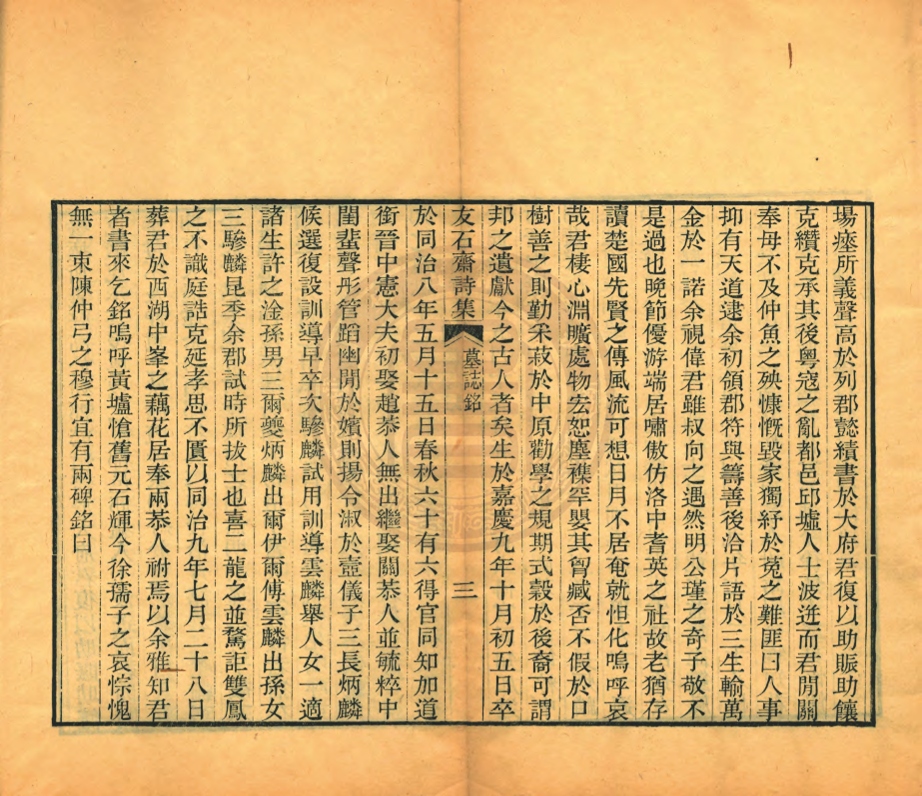 場瘞所義聲高於列郡懿績書於大府君復以助賑助饟
克纘克承其後粵寇之亂都邑邱墟人士波迸而君閒關
奉母不及仲魚之殃慷慨毀家獨紓於菟之難匪曰人事
抑有天道逮余初領郡符與籌善後洽片語於三生輸萬
金於一諾余視偉君雖叔向之遇然明公瑾之奇子敬不
是過也晚節優游端居嘯傲仿洛中耆英之社故老猶存
讀楚國先賢之傳風流可想日月不居奄就怛化嗚呼哀
哉君棲心淵曠處物宏恕塵襟罕嬰其胷臧否不假於口
樹善之則勤采菽於中原勸學之規期式穀於後裔可謂
邦之遺獻今之古人者矣生於嘉慶九年十月初五日卒
友石齋詩集 墓誌銘 三
於同治八年五月十五日春秋六十有六得官同知加道
銜晉中憲大夫初娶趙恭人無出繼娶關恭人並毓粹中
閨蜚聲彤管蹈幽閒於嬪則揚令淑於壼儀子三長炳麟
候選復設訓導早卒次驂麟試用訓導雲麟舉人女一適
諸生許之淦孫男三爾夔炳麟出爾伊爾傅雲麟出孫女
三驂麟昆季余郡試時所拔士也喜二龍之並騖詎雙鳳
之不識庭誥克延孝思不匱以同治九年七月二十八日
葬君於西湖中峯之藕花居奉兩恭人祔焉以余雅知君
者書來乞銘嗚呼黃壚愴舊元石輝今徐孺子之哀悰愧
無一束陳仲弓之穆行宜有兩碑銘曰